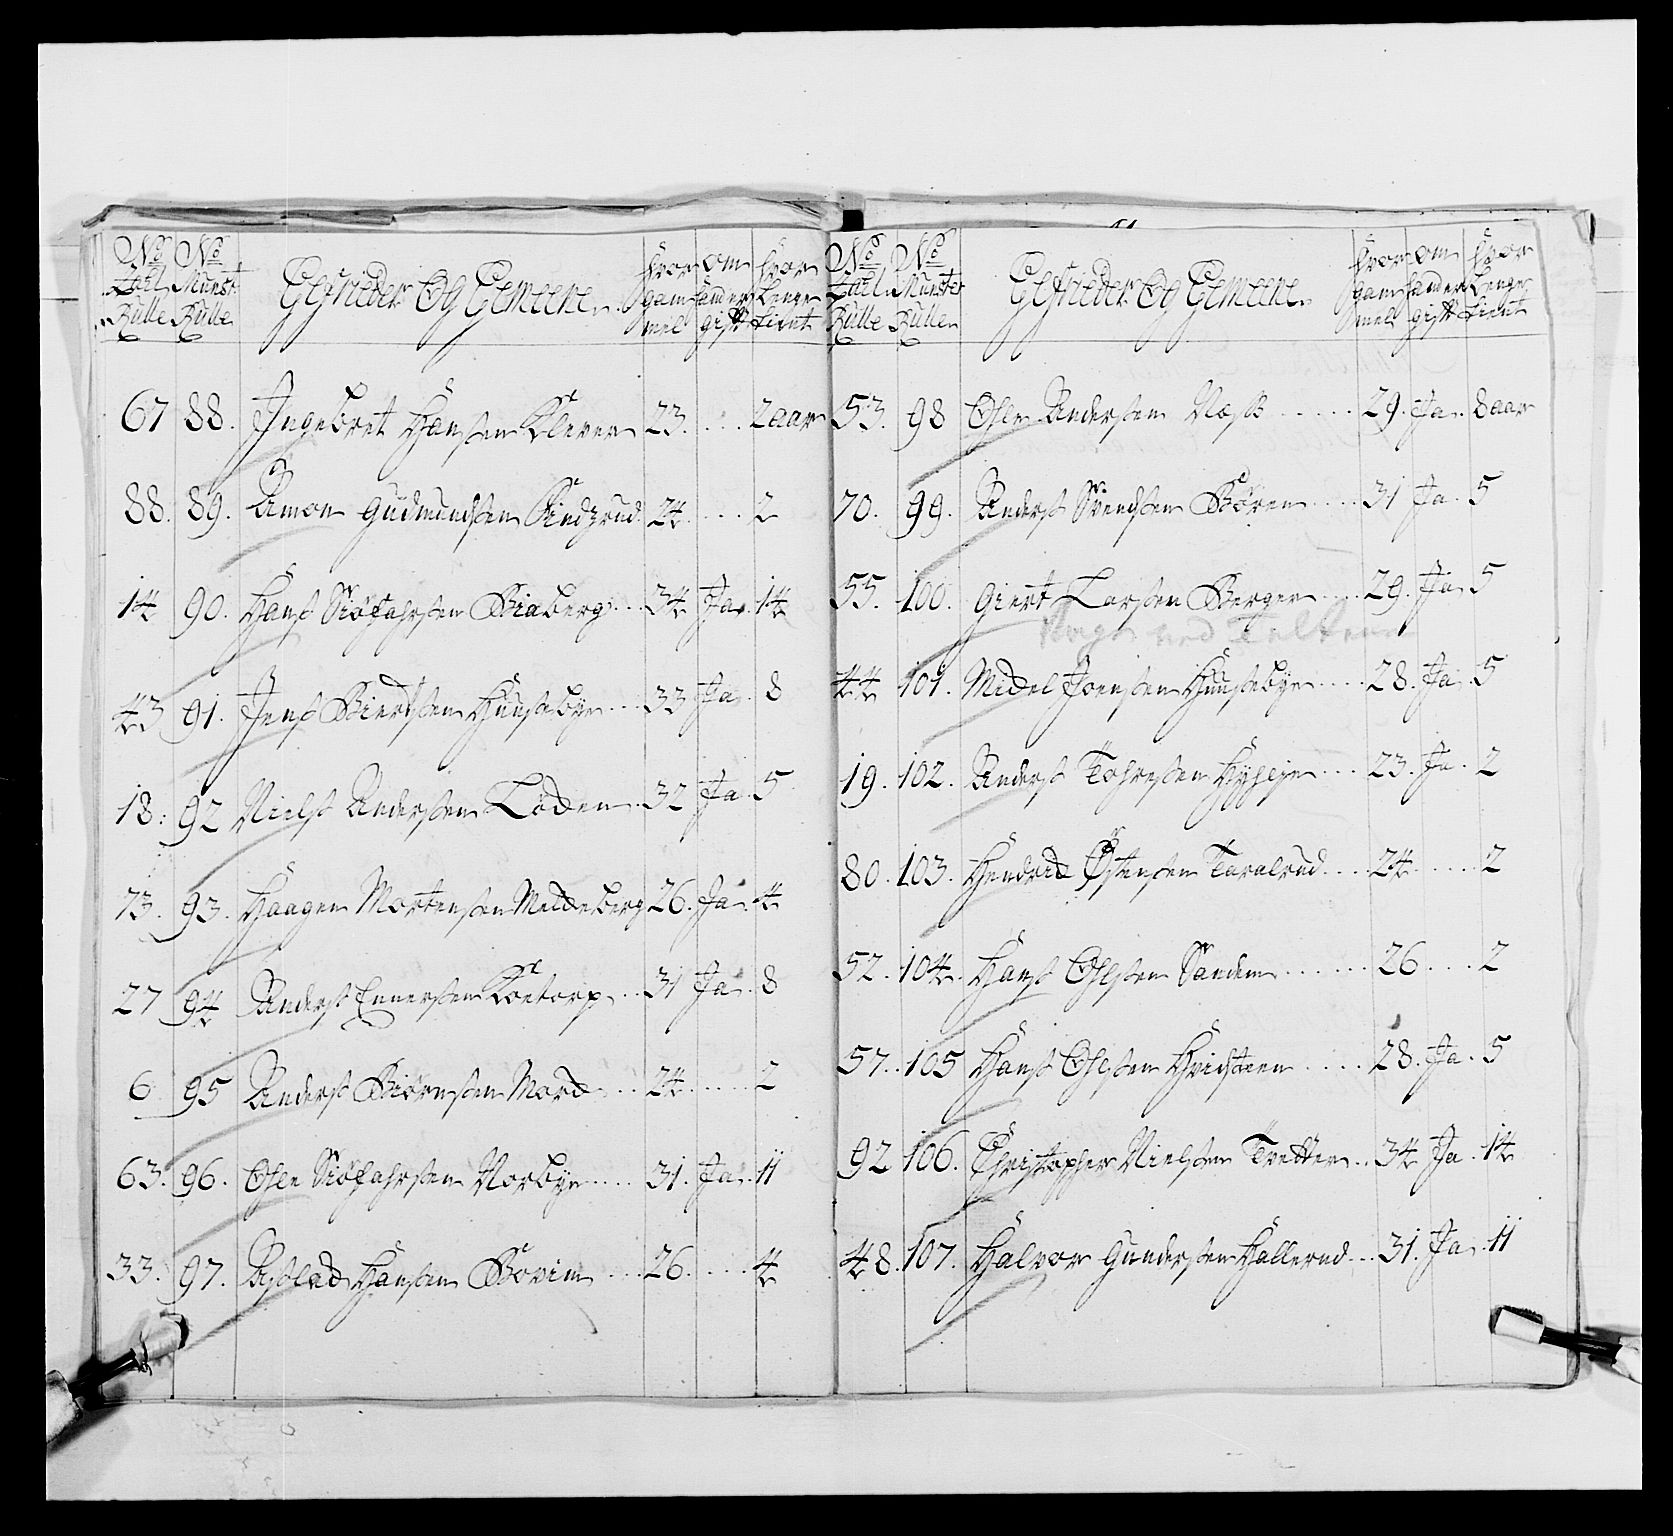 No Zael Rulle No Munster Rulle Gefrieder Og Gemeene hvor gammel om hand er gift hvor Lenge tient
67 88. Ingebret Hansen Klever 23. . . . 2 aar
88. 89. Amon Gudmundsen Rindzrud 24 . . . . 2
14 90. Hans Siøfahrsen Biaberg . . . 34 Ja. 14
43 91. Jens Biertsen Huusebye . . . 33 Ja. 8
18. 92 Niels Andersen Lodden. 32 Ja 5
73. 93. Haagen Mortensen Meldeberg 26. Ja. 4
27 94 Anders Ennersen Kœtorp . . . 31 Ja. 8
6 95 Anders Biørnsen Mord . . . 24 . . . . . 2
63. 96. Ole Siøfahrsen Norbye . . . . . 31. Ja. 11
33. 97. Aslack Hansen Bovim . . . 26. . . . . . 4
No Zael Rulle No Munster Rulle Gefrieder Og Gemeene hvor gammel om hand er gift hvor Lenge tient
53. 98 Ole Andersen Næss . . . . . 29. Ja. 8 aar
70. 99. Anders Svendsen Børen . . . . 31 Ja. 5
55. 100. Giert Larsen Berger . . . . 29. Ja. 5
ved
44 101. Mickel Joensen Huusebye . . . . 28. Ja. 5
19. 102. Anders Tohresen . . . 23. Ja. 2
80. 103. Hendrick Østensen Taralrud . . . . 24 . . . . . 2
52. 104. Hans Olsen Sanden . . . . . . 26 . . . . 2
57. 105 Hans Olsen Hvidsteen . . . . . 28. Ja. 5
92 106. Christopher Nielsen Tretten . . 34 Ja. 14
48. 107. Halvor Gundersen Hallerud . . . 31. Ja. 11